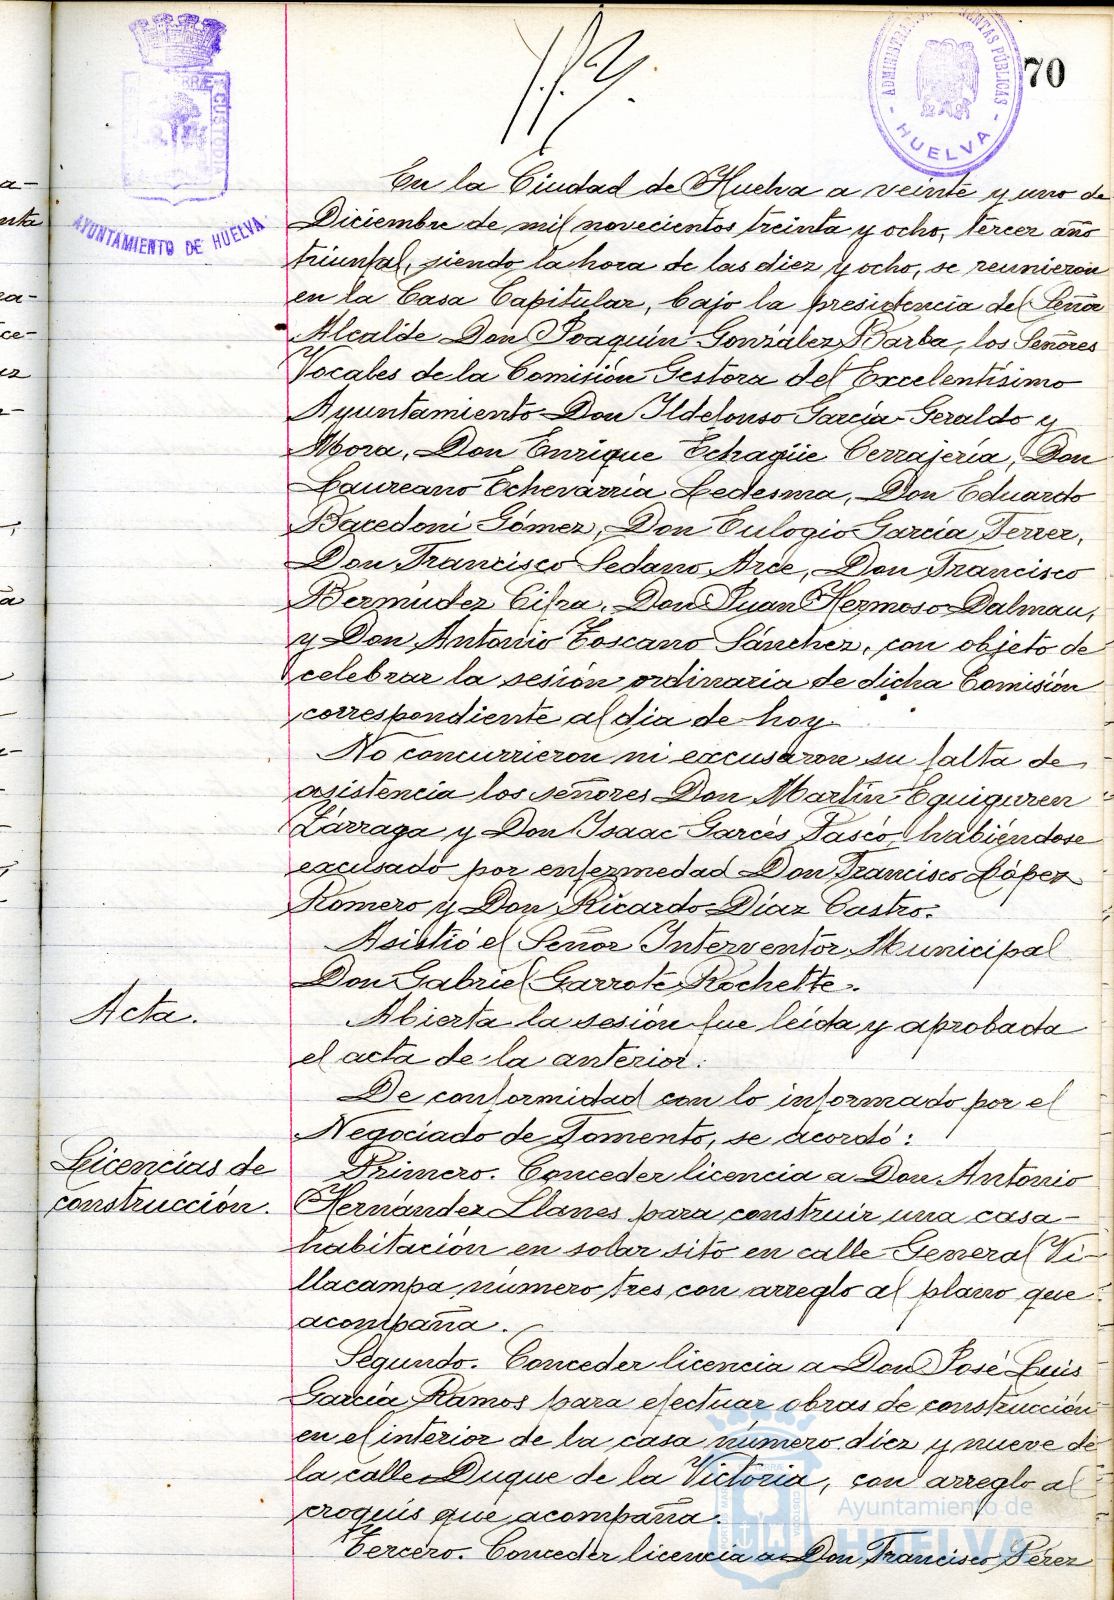 70
PORTUS MARIS ET TERRÆ CUSTODIA
AYUNTAMIENTO DE HUELVA
ADMINISTRACIÓN DE RENTAS PÚBLICAS
- HUELVA -
En la Ciudad de Huelva a veinte y uno de
Diciembre de mil novecientos treinta y ocho, tercer año
triunfal, siendo la hora de las diez y ocho, se reunieron
en la Casa Capitular, bajo la presidencia del Señor
Alcalde Don Joaquín González Barba, los Señores
Vocales de la Comisión Gestora del Excelentísimo
Ayuntamiento Don Ildefonso García Geraldo y
Mora, Don Enrique Echagüe Cerrajería, Don
Laureano Echevarría Ledesma, Don Eduardo
Bacedoni Gómez, Don Eulogio García Ferrer,
Don Francisco Sedano Arce, Don Francisco
Bermúdez Cifra, Don Juan Hermoso Dalmau,
y Don Antonio Toscano Sánchez, con objeto de
celebrar la sesión ordinaria de dicha Comisión
correspondiente al dia de hoy.
No concurrieron ni excusaron su falta de
asistencia los señores Don Martín Eguiguren
Lárraga y Don Isaac Garcés Pascó, habiéndose
excusado por enfermedad Don Francisco López
Romero y Don Ricardo Díaz Castro.
Asistió el Señor Interventor Municipal
Don Gabriel Garrote Rochette.
Acta.
Abierta la sesión fue leída y aprobada
el acta de la anterior.
De conformidad con lo informado por el
Negociado de Fomento, se acordó:
Licencias de
construcción.
Primero. Conceder licencia a Don Antonio
Hernández Llanes para construir una casa-
habitación en solar sito en calle General Vi-
llacampa número tres con arreglo al plano que
acompaña.
Segundo. Conceder licencia a Don José Luis
García Ramos para efectuar obras de construcción
en el interior de la casa número diez y nueve de
la calle Duque de la Victoria, con arreglo al
croquis que acompaña.
Tercero. Conceder licencia a Don Francisco Pérez
Ayuntamiento de
HUELVA